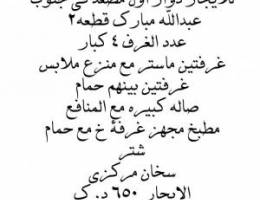 للايجار دوار اول مصعد في جنوب
عبدالله مبارك قطعه٢
عدد الغرف ٤ كبار
غرفتين ماستر مع منزع ملابس
غرفتين بينهم حمام
صاله كبيره مع المنافع
مطبخ مجهز غرفة خ مع حمام
شتر
سخان مركزي
الايجار ٦٥٠ د.ك